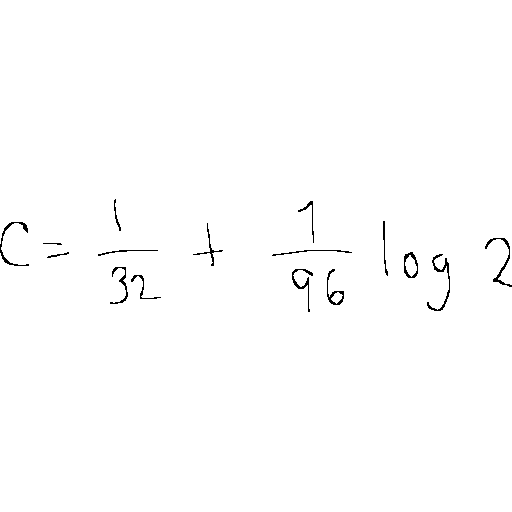 C = \frac{1}{32} + \frac{1}{96} \log 2